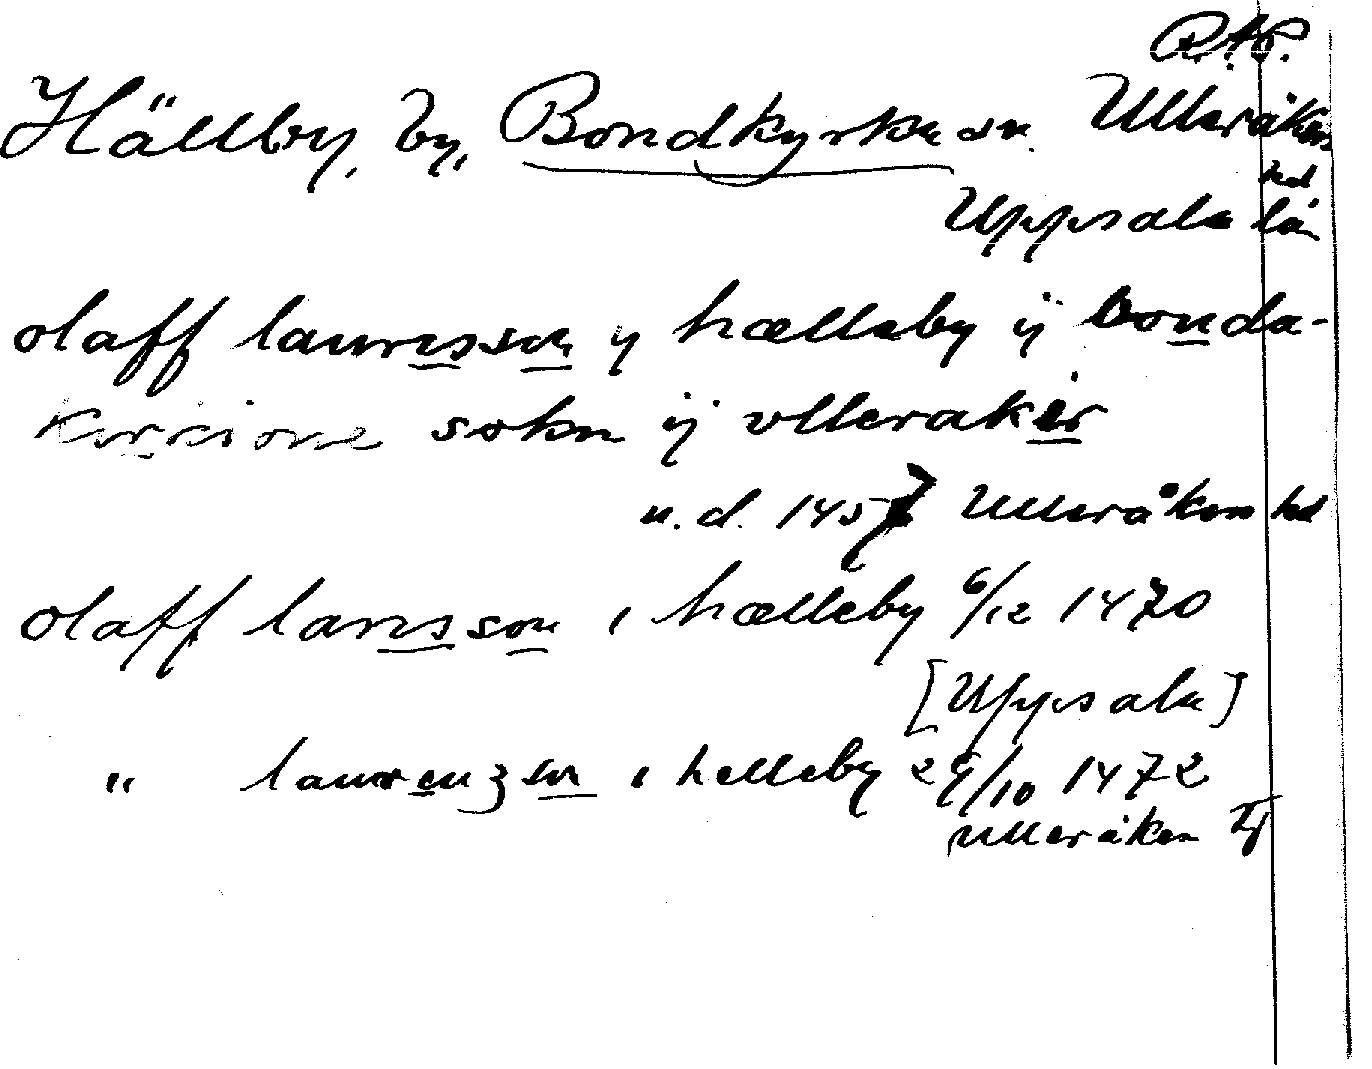 R.A.P.
Hällby, by, Bondkyrka sn. Ulleråkers
hd
Uppsala län
olaff laurisson y hælleby ij bonda-
kirkione sokn ij vlleraker
u.d. 1457 Ulleråkers hd
olaff larisson i hælleby 6/12 1470
[Uppsala]
" laurenzson i helleby 29/10 1472
Ulleråkers